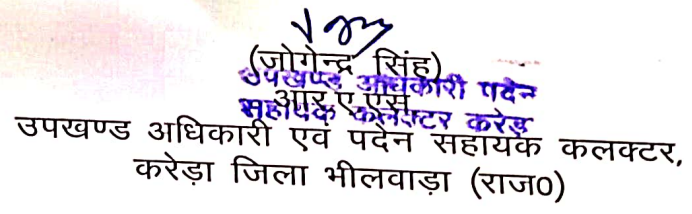 (जोगेन्द्र सिंह)
उपखण्ड अधिकारी पदेन
आर.ए.एस
सहायक कलेक्टर करेड़ा
उपखण्ड अधिकारी एवं पदेन सहायक कलक्टर,
करेड़ा जिला भीलवाड़ा (राज0)